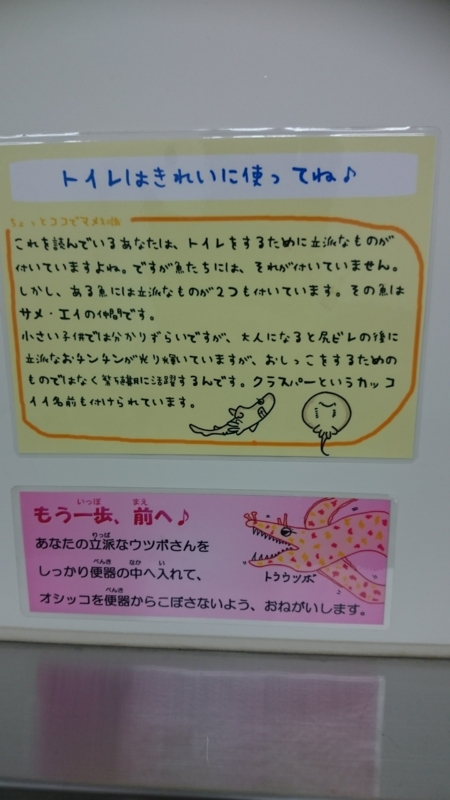 トイレはきれいに使ってね♪
ちょっとココでマメ知識
これを読んでいるあなたは、トイレをするために立派なものが
付いていますよね。ですが魚たちには、それが付いていません。
しかし、ある魚には立派なものが2つも付いています。その魚は
サメ・エイの仲間です。
小さい子供では分かりずらいですが、大人になると尻ビレの後に
立派なおチンチンが光り輝いていますが、おしっこをするための
ものではなく繁殖期に活躍するんです。クラスパーというカッコ
イイ名前も付けられています。
もう一歩、前へ♪
あなたの立派なウツボさんを
しっかり便器の中へ入れて、
オシッコを便器からこぼさないよう、おねがいします。
トラウツボ